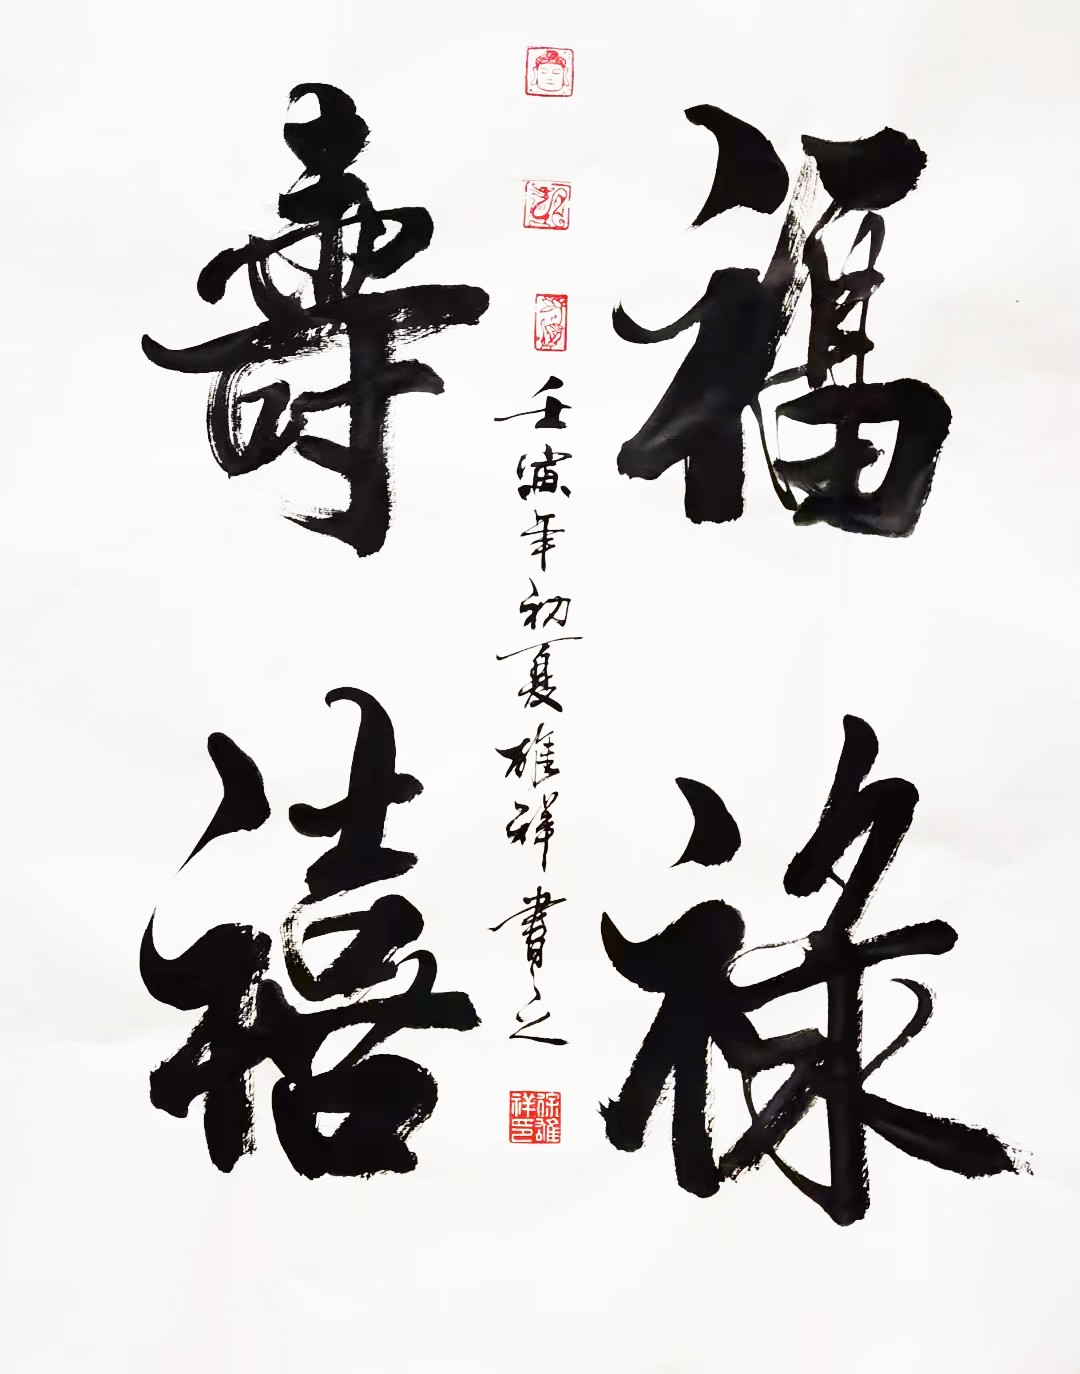 福祿
壽禧
壬寅年初夏雄祥書之
徐雄祥印